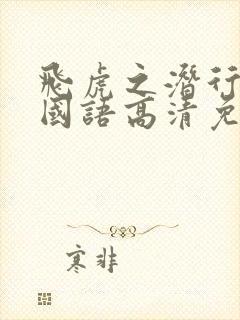 飛虎之潛行
國語高清免
寒非